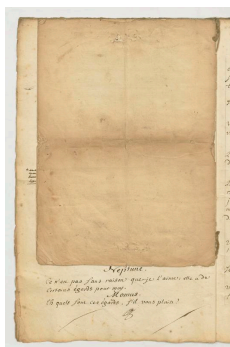 Neptune.
Ce n'est pas sans raison que je l'aime, elle a de
certains égards pour moy.
Momus.
Eh quels sont ces égards, s'il vous plait?